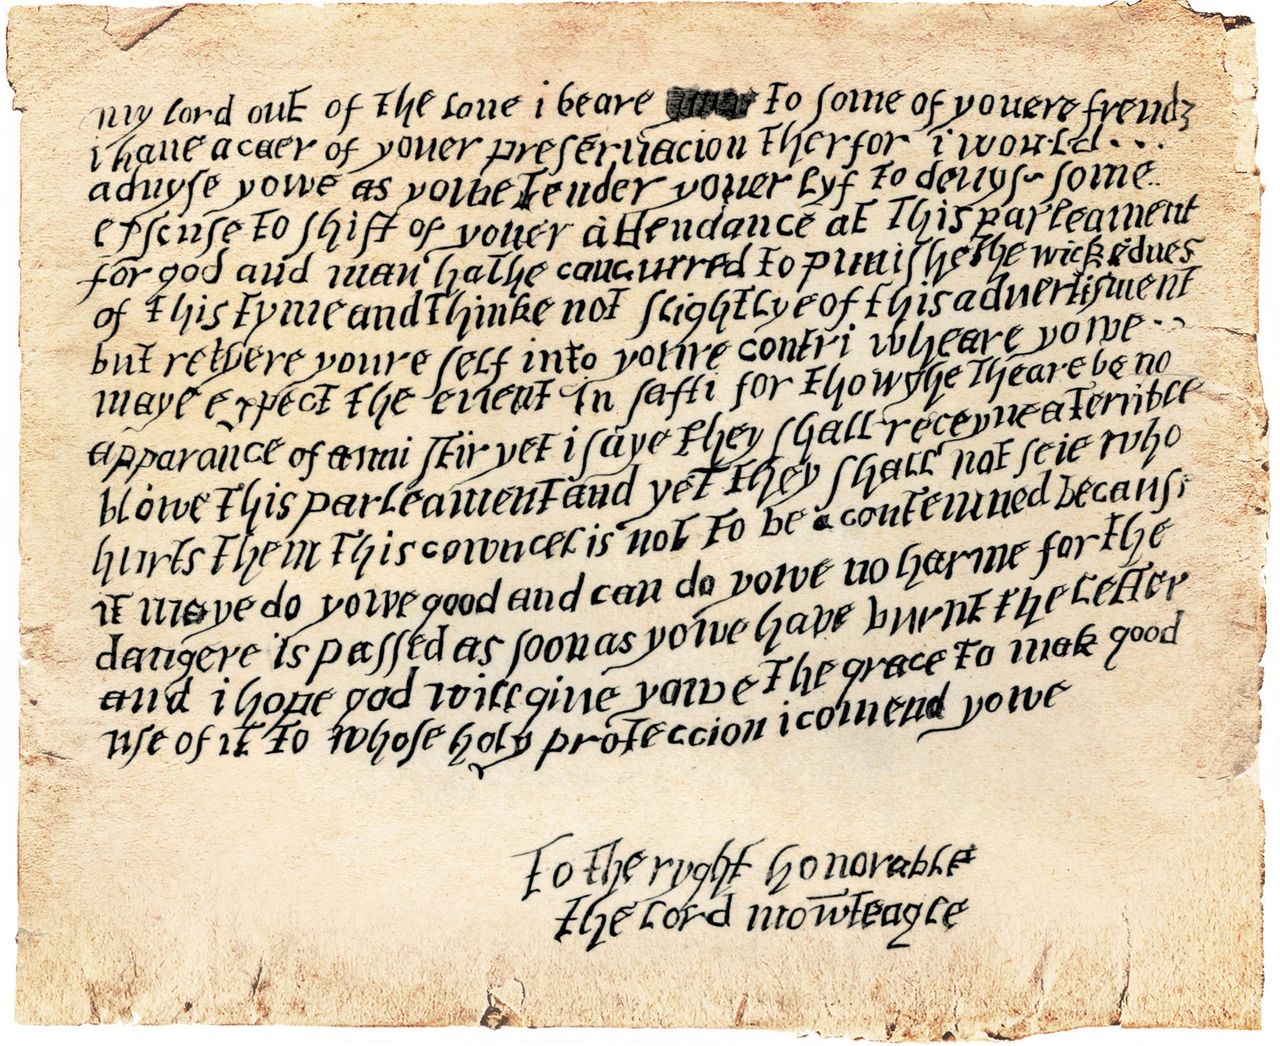 my lord out of the love i beare to some of youere frendz
i have a caer of youer preservacion therfor i would...
advyse yowe as yowe tender youer lyf to devys some..
exscuse to shift of youer attendance at this parleament
for god and man hathe concurred to punishe the wickednes
of this tyme and thinke not slightlye of this advertisment
but retyere youre self into youre contri wheare yowe..
maye expect the event in safti for thowghe theare be no
apparance of anni stir yet i saye they shall receyve a terrible
blowe this parleament and yet they shall not seie who
hurts them this cowncel is not to be a contemned because
it maye do yowe good and can do yowe no harme for the
dangere is passed as soon as yowe have burnt the letter
and i hope god will give yowe the grace to mak good
use of it to whose holy proteccion i comend yowe
To the ryght honorable
the lord mowteagle